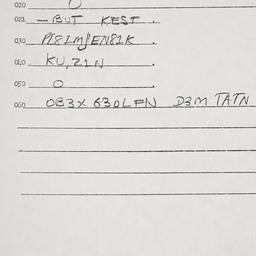 020 O
021 — BUT KEST .
030 .
040 KU, Z1N .
050 O .
060 OB3X 630LFN D3M TATN